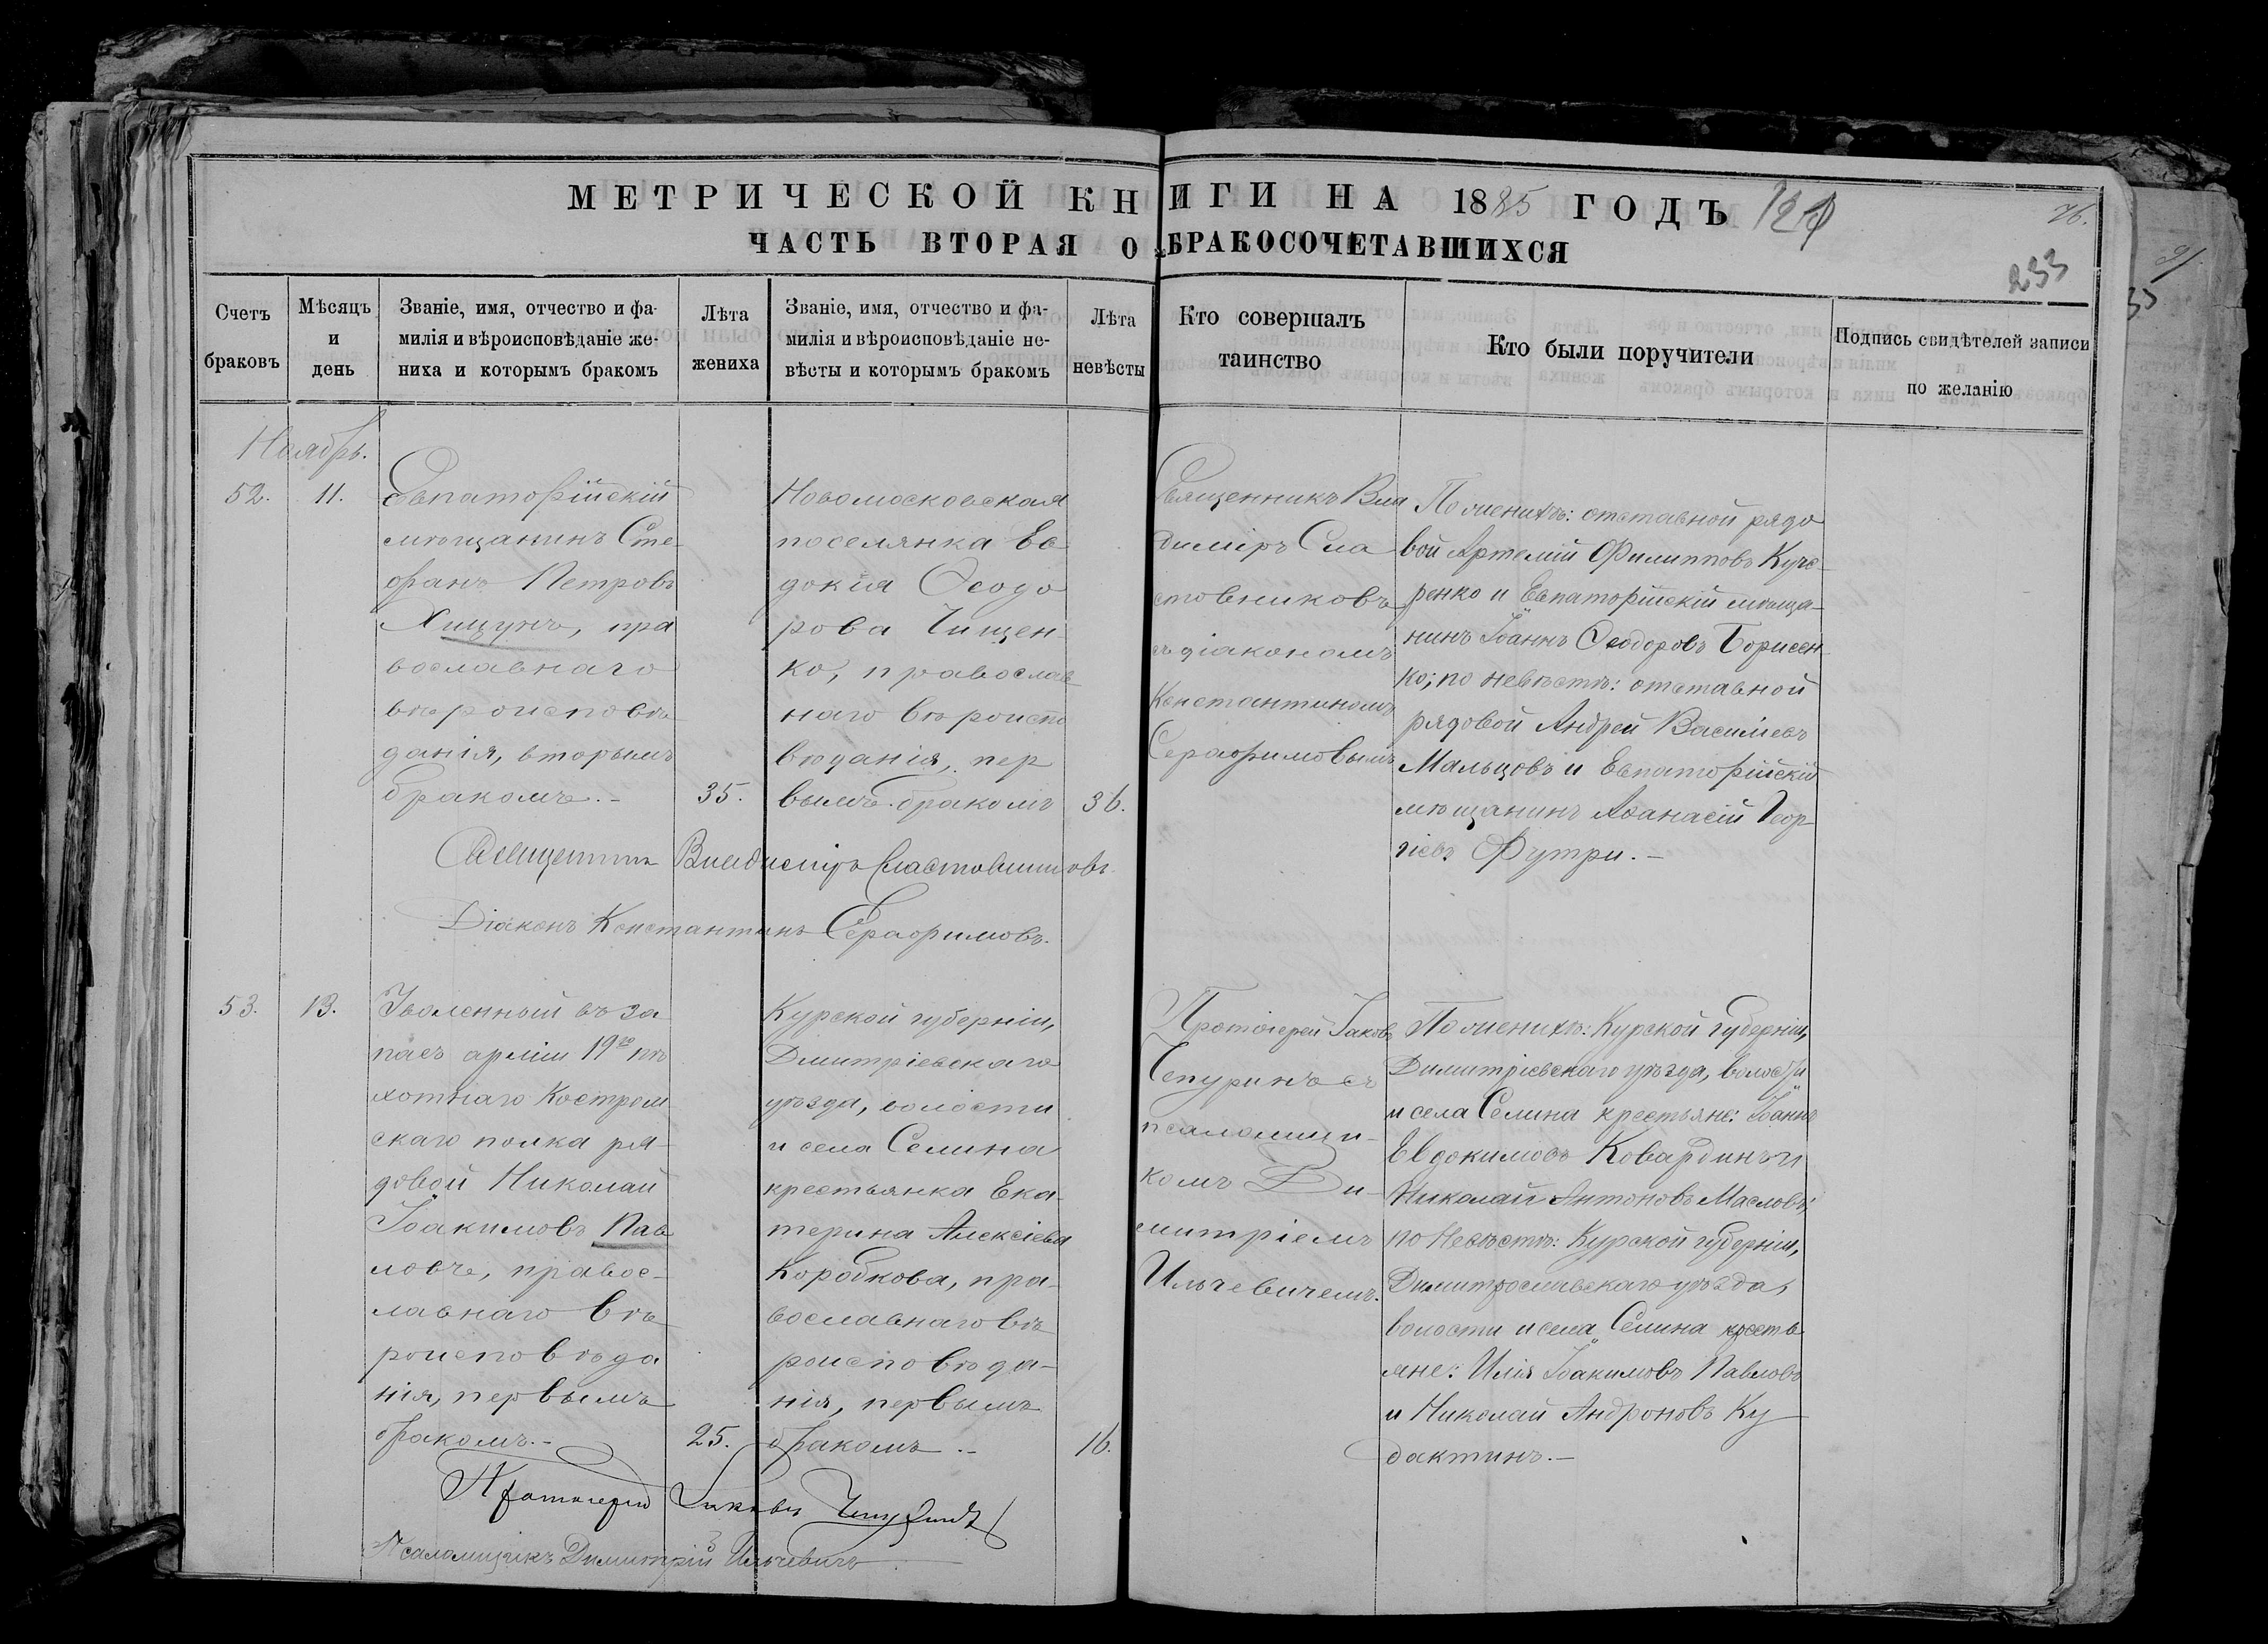 МЕТРИЧЕСКОЙ КНИГИ НА 1885 ГОДЪ
76.
ЧАСТЬ ВТОРАЯ О БРАКОСОЧЕТАВШИХСЯ
233
Счетъ
браковъ
Мѣсяцъ
и
день
Званіе, имя, отчество и фа-
милія и вѣроисповѣданіе же-
ниха и которымъ бракомъ
Лѣта
жениха
Званіе, имя, отчество и фа-
милія и вѣроисповѣданіе не-
вѣсты и которымъ бракомъ
Лѣта
невѣсты
Кто совершалъ
таинство
Кто были поручители
Подпись свидѣтелей записи
по желанію
Ноябрь.
52.
11.
Евпаторійскій
мѣщанинъ Сте-
фанъ Петровъ
Хищунъ, пра
вославнаго
вѣроисповѣ
данія, вторымъ
бракомъ.-
35.
Новомосковская
поселянка Ев
докія Ѳеодо
рова Тищен-
ко, православ
наго вѣроиспо
вѣданія, пер
вымъ бракомъ
36.
Священникъ Вла
диміръ Сла
стовниковъ
съ діакономъ
Константиномъ
Серафимовымъ
По женихѣ: отставной рядо
вой Артемій Филипповъ Куче-
ренко и Евпаторійскій мѣща-
нинъ Іоаннъ Ѳеодоровъ Борисен-
ко; по невѣстѣ: отставной
рядовой Андрей Василіевъ
Мальцовъ и Евпаторійскій
мѣщанинъ Аѳанасій Геор
гіевъ Футри.-
Священникъ Владиміръ Сластовниковъ.
Діаконъ Константинъ Серафимовъ.
53.
13.
Уволенный въ за
пасъ арміи 19го пѣ
хотнаго Костром
скаго полка ря-
довой Николай
Іоакимовъ Пав
ловъ, правос-
лавнаго вѣ
роисповѣда
нія, первымъ
бракомъ.-
25.
Курской губерніи,
Димитріевскаго
уѣзда, волости
и села Селина
крестьянка Ека-
терина Алексіева
Коробкова, пра-
вославнаго вѣ
роисповѣда-
нія, первымъ
бракомъ.-
16.
Протоіерей Іаковъ
Чепуринъ съ
псаломщи-
комъ Ди-
митріемъ
Ильчевичемъ.
По женихѣ: Курской губерніи,
Димитріевскаго уѣзда, волости
и села Селина крестьяне: Іоаннъ
Евдокимовъ Ковардинъ и
Николай Антоновъ Масловъ;
по невѣстѣ: Курской губерніи,
Димитрославскаго уѣзда,
волости и села Селина кресть
яне: Илія Іоакимовъ Павловъ
и Николай Андроновъ Ку
дактинъ.-
Протоіерей Іаковъ Чепуринъ
Псаломщикъ Димитрій Ильчевичъ